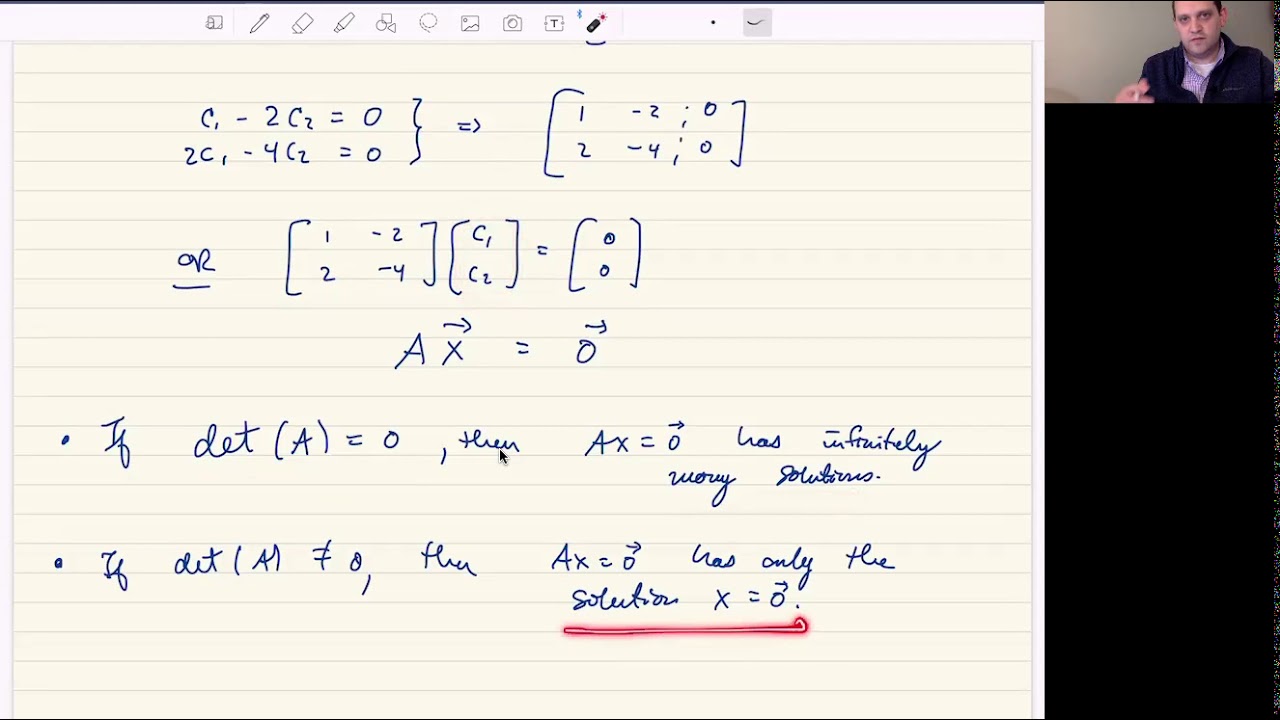 C₁ - 2C₂ = 0 } ⇒ [ 1 -2 ; 0
2C₁ - 4C₂ = 0 2 -4 ; 0 ]
OR [ 1 -2 ] [ C₁ ] = [ 0 ]
2 -4 C₂ 0
A x⃗ = 0⃗
• If det(A) = 0, then Ax = 0⃗ has infinitely
many solutions.
• If det(A) ≠ 0, then Ax = 0⃗ has only the
solution x = 0⃗.